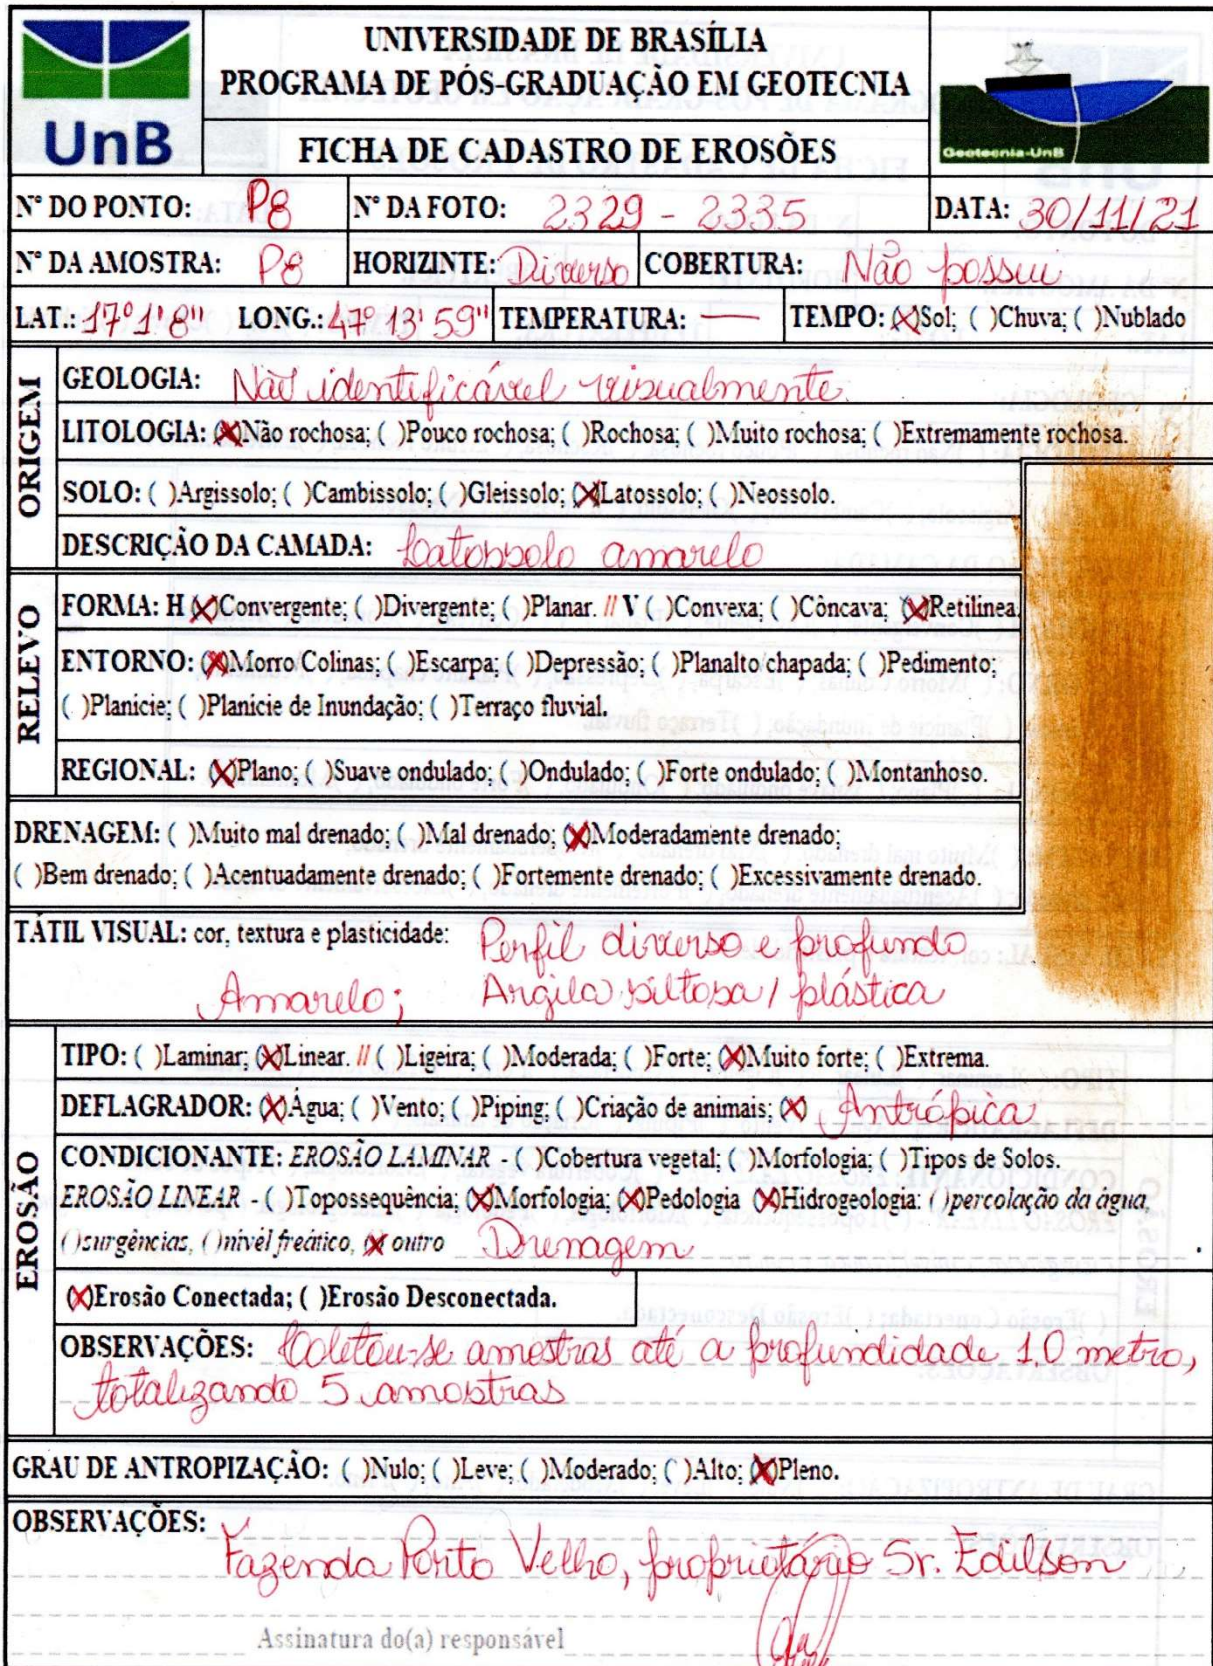 UnB
UNIVERSIDADE DE BRASÍLIA
PROGRAMA DE PÓS-GRADUAÇÃO EM GEOTECNIA
FICHA DE CADASTRO DE EROSÕES
Geotecnia-UnB
Nº DO PONTO: P8 Nº DA FOTO: 2329 - 2335 DATA: 30/11/21
Nº DA AMOSTRA: P8 HORIZINTE: Diverso COBERTURA: Não possui
LAT.: 17º1'8" LONG.: 47º13'59" TEMPERATURA: — TEMPO: (X)Sol; ( )Chuva; ( )Nublado
ORIGEM
GEOLOGIA: Não identificável visualmente.
LITOLOGIA: (X)Não rochosa; ( )Pouco rochosa; ( )Rochosa; ( )Muito rochosa; ( )Extremamente rochosa.
SOLO: ( )Argissolo; ( )Cambissolo; ( )Gleissolo; (X)Latossolo; ( )Neossolo.
DESCRIÇÃO DA CAMADA: Latossolo amarelo
RELEVO
FORMA: H (X)Convergente; ( )Divergente; ( )Planar. // V ( )Convexa; ( )Côncava; (X)Retilínea.
ENTORNO: (X)Morro/Colinas; ( )Escarpa; ( )Depressão; ( )Planalto/chapada; ( )Pedimento;
( )Planície; ( )Planície de Inundação; ( )Terraço fluvial.
REGIONAL: (X)Plano; ( )Suave ondulado; ( )Ondulado; ( )Forte ondulado; ( )Montanhoso.
DRENAGEM: ( )Muito mal drenado; ( )Mal drenado; (X)Moderadamente drenado;
( )Bem drenado; ( )Acentuadamente drenado; ( )Fortemente drenado; ( )Excessivamente drenado.
TÁTIL VISUAL: cor, textura e plasticidade: Perfil diverso e profundo
Amarelo; Argila siltosa / plástica
EROSÃO
TIPO: ( )Laminar; (X)Linear. // ( )Ligeira; ( )Moderada; ( )Forte; (X)Muito forte; ( )Extrema.
DEFLAGRADOR: (X)Água; ( )Vento; ( )Piping; ( )Criação de animais; (X) Antrópica
CONDICIONANTE: EROSÃO LAMINAR - ( )Cobertura vegetal; ( )Morfologia; ( )Tipos de Solos.
EROSÃO LINEAR - ( )Topossequência; (X)Morfologia; (X)Pedologia (X)Hidrogeologia: ( )percolação da água,
( )surgências, ( )nível freático, (X) outro Drenagem.
(X)Erosão Conectada; ( )Erosão Desconectada.
OBSERVAÇÕES: Coletou-se amostras até a profundidade 1,0 metro,
totalizando 5 amostras
GRAU DE ANTROPIZAÇÃO: ( )Nulo; ( )Leve; ( )Moderado; ( )Alto; (X)Pleno.
OBSERVAÇÕES:
Fazenda Porto Velho, proprietário Sr. Edilson
Assinatura do(a) responsável